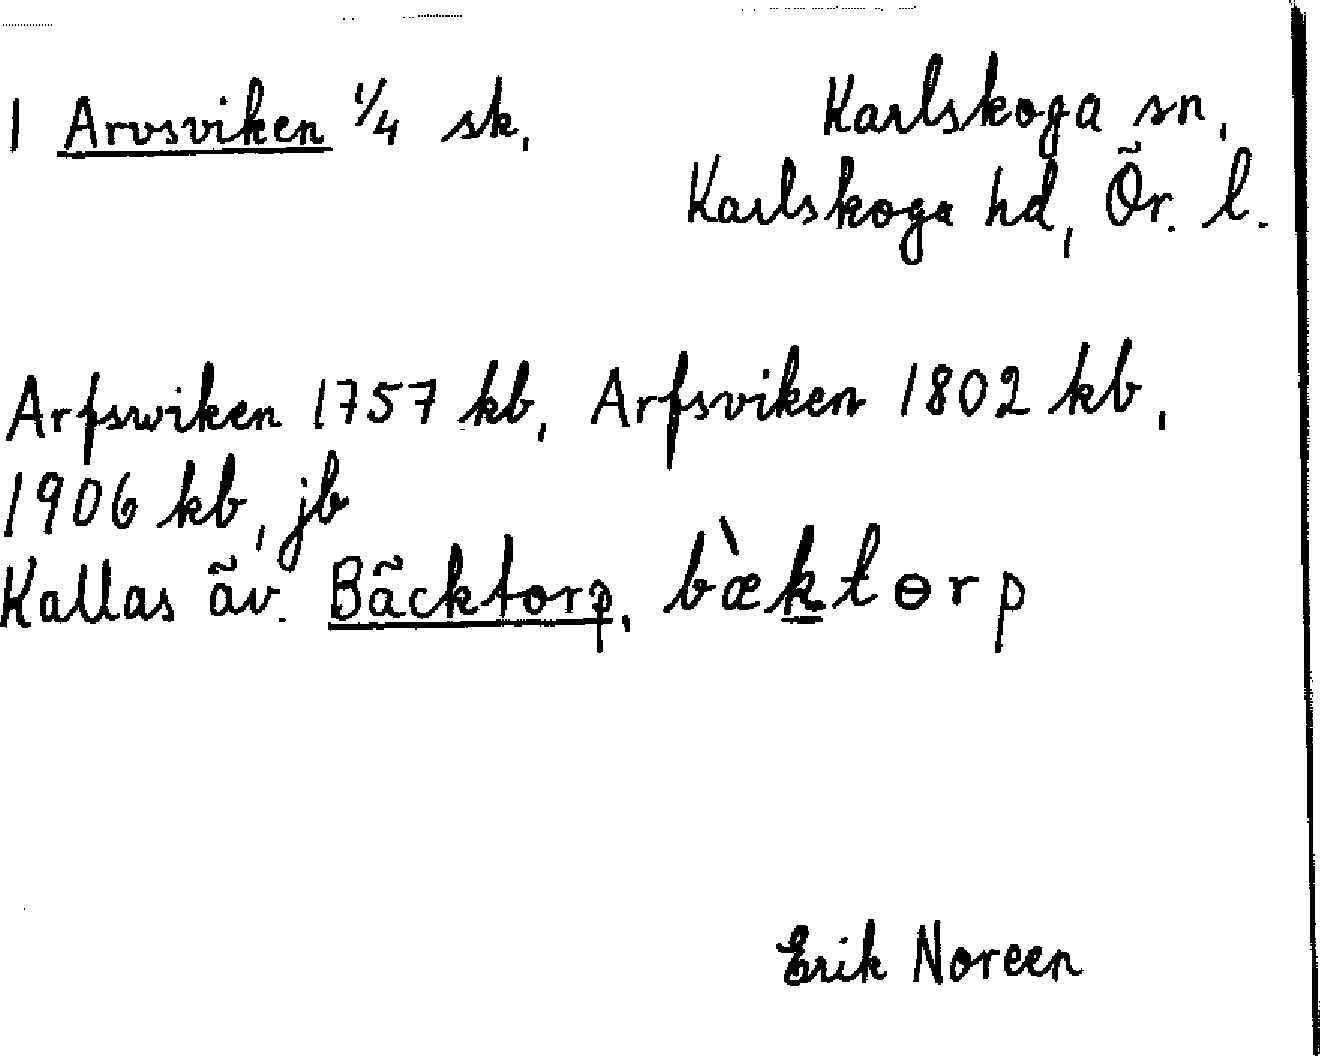 1 Arvsviken 1/4 sk. Karlskoga sn,
Karlskoga hd, Ör. l.
Arfswiken 1757 kb, Arfsviken 1802 kb,
1906 kb, jb
Kallas äv. Bäcktorp, bæ̀ktɵrp
Erik Noreen